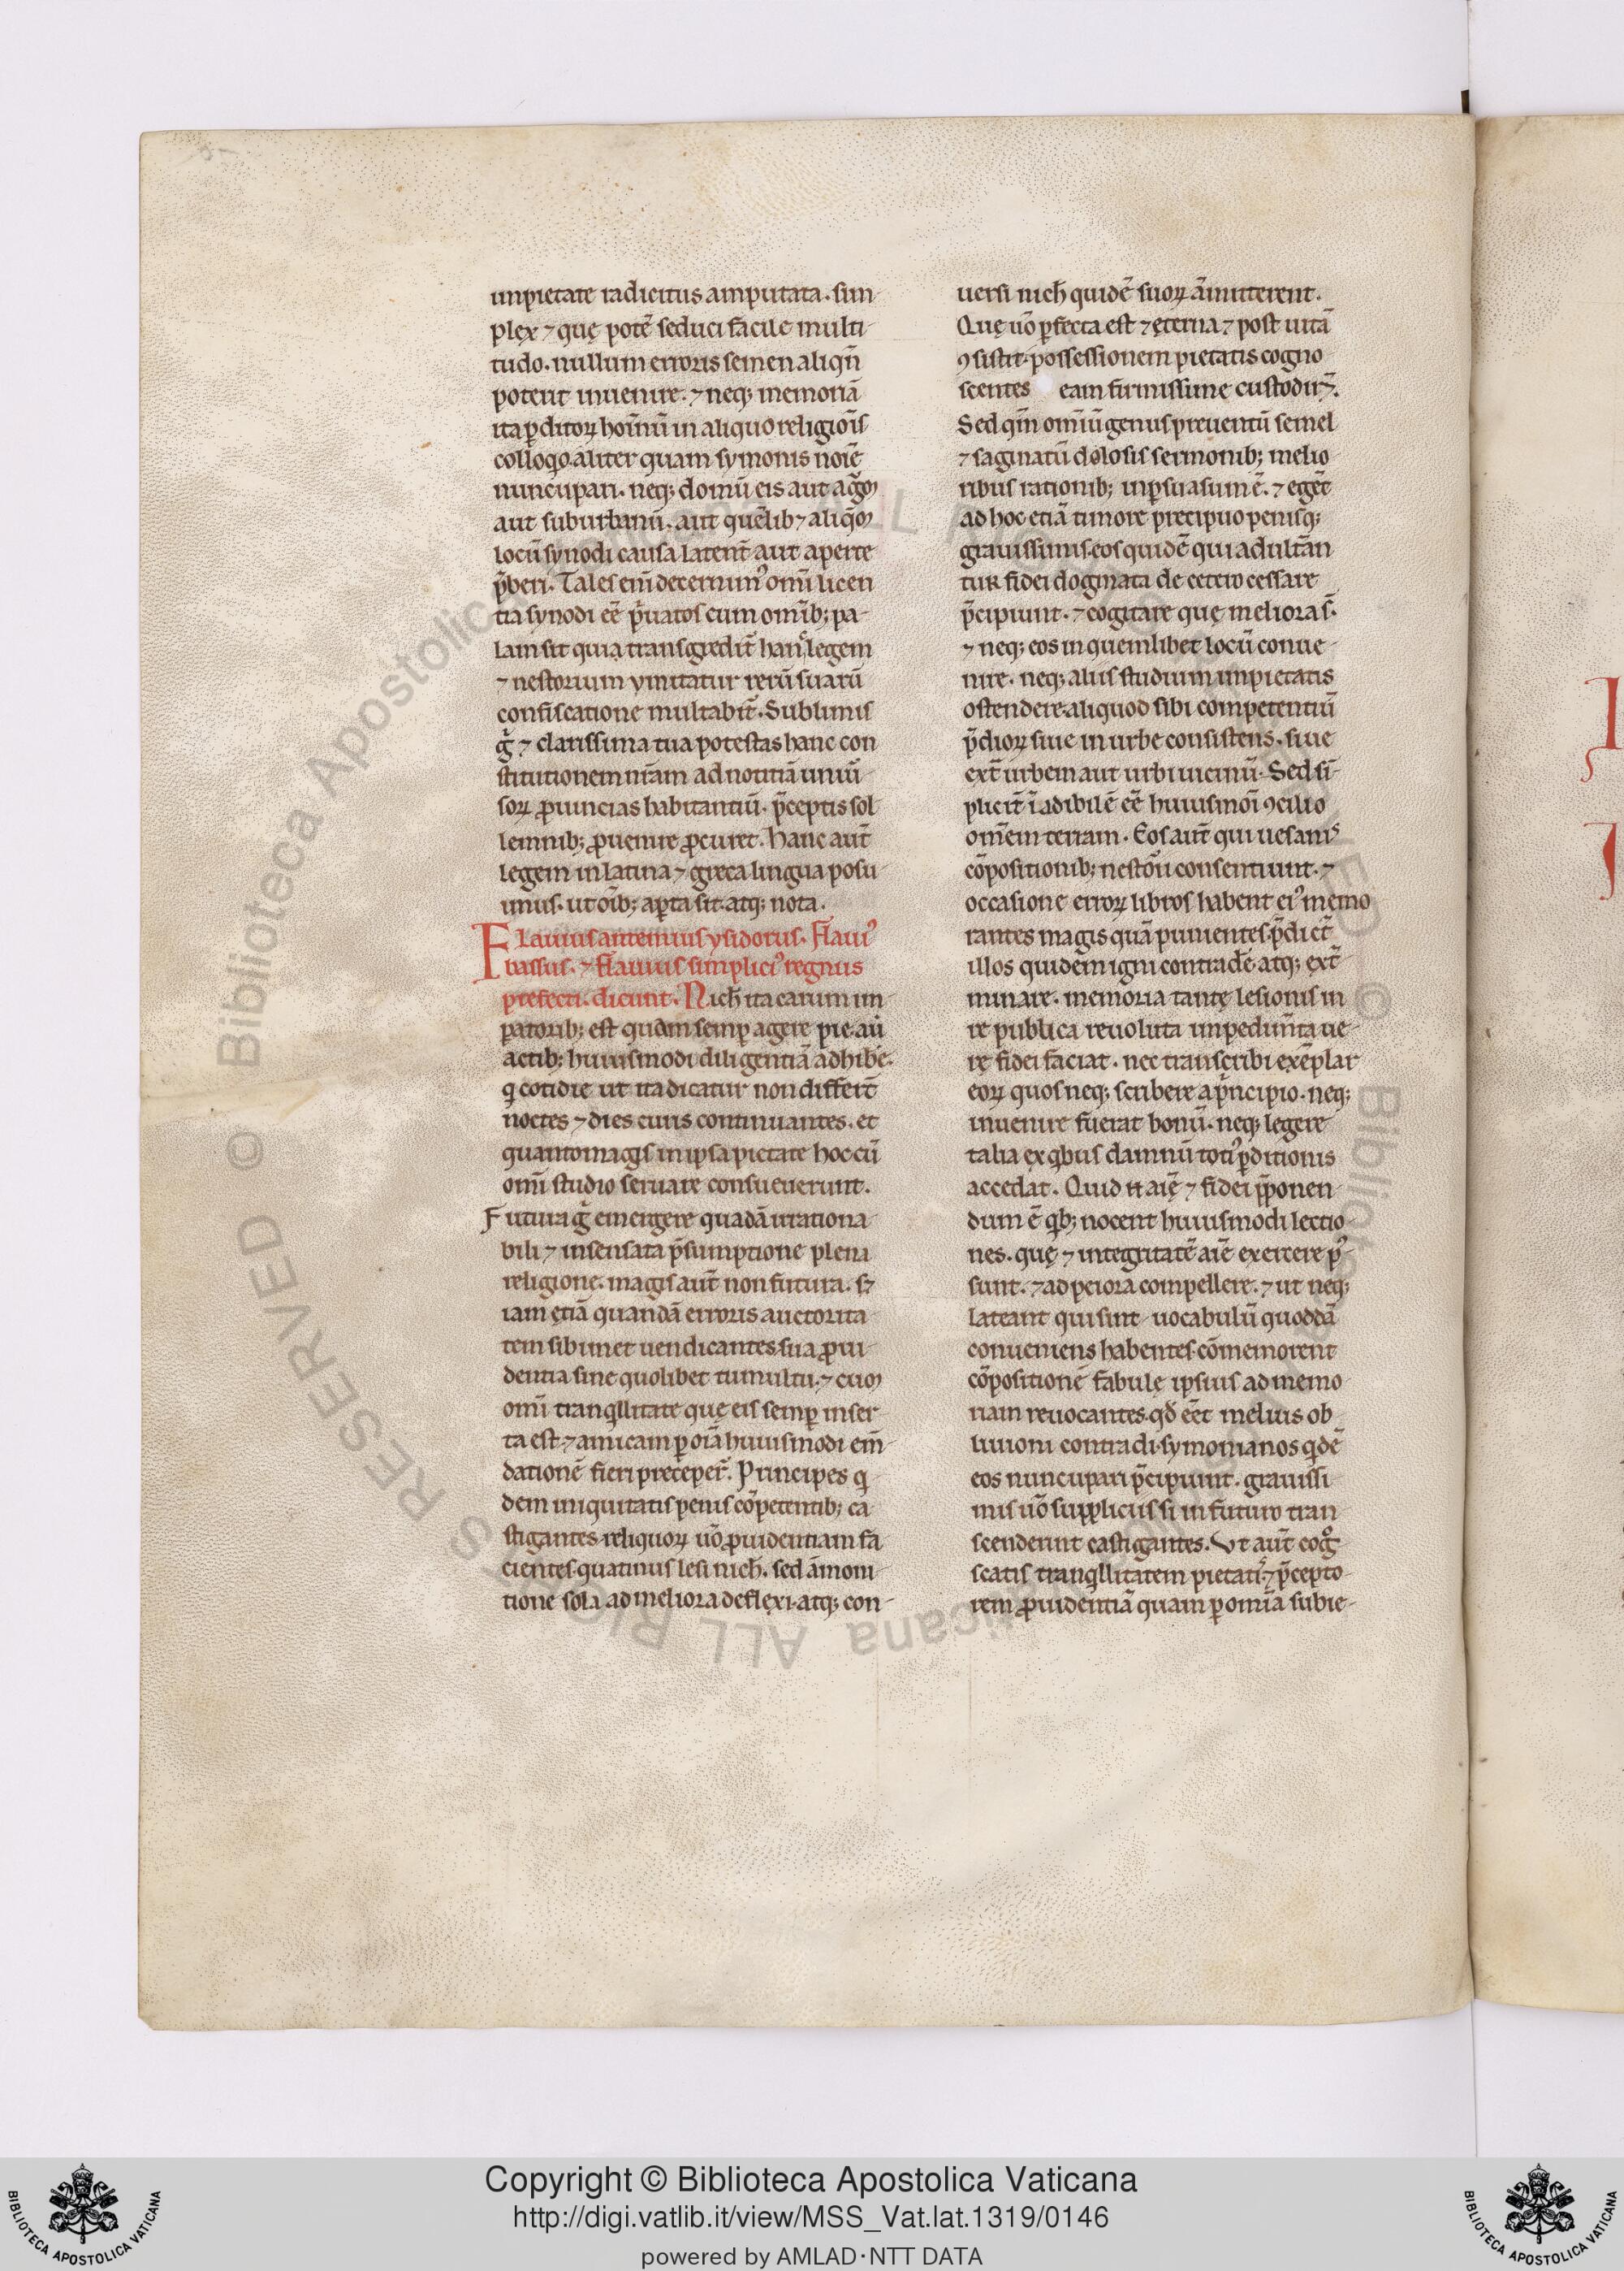 inpietate radicitus amputata. sim-
plex ⁊ quę potē seduci facile multi-
tudo. nullum erroris semen aliqn̄
poterit inuenire. ⁊ neq; memoriā
ita ꝑditoꝝ hoīnū in aliquo religiōis
colloqo. aliter quam symonis noīe
nuncupari. neq; domū eis aut agrō
aut suburbanū. aut quēlib⁊ aliqō
locū synodi causa latent̄ aut aperte
p̄beri. Tales eni decernim᷒ omī licen
tia synodi eē p̄uatos cum omīb; pa-
lam sit quia transgredit̄ hanc legem
⁊ nestorium ymitatur rerū suarū
confiscatione multabit̄. Sublimis
g̃ ⁊ clarissima tua potestas hanc con
stitutionem nr̄am ad notitiā uniū-
soꝝ ꝓuincias habitantiū. p̄ceptis sol
lemnib; ꝓuenire ꝓcuret. Hanc aut̄
legem in latina ⁊ greca lingua posu-
imus. ut oīb; aꝑta sit. atq; nota.
Flauius antemius ysidorus. Flaui᷒
bassus. ⁊ flauius simplici᷒ regnus
prefecti. dicunt. Nich̄ ita carum im-
ꝑatorib; est quam semꝑ agere pie. aū
actib; huiusmodi diligentiā adhibe.
q cotidie ut ita dicatur non differt̄
noctes ⁊ dies curis continuantes. et
quanto magis in ipsa pietate hoc cū
omī studio seruare consueuerunt.
Futura g̃ emergere quadā irrationa-
bili ⁊ insensata p̄sumptione pleni
religione. magis aut̄ non futura. s⁊
iam etiā quandā erroris auctorita-
tem sibimet uendicantes sua ꝓui-
dentia sine quolibet tumultu. ⁊ cum
omī tranqllitate quę eis semꝑ inser-
ta est. ⁊ amicam ꝑ oīa huiusmodi em̄-
dationē fieri preceper̄. Principes q
dem iniquitatis penis cōpetentib; ca-
stigantes. reliquoꝝ uō ꝓuidentiam fa
cientes. quatinus lesi nich̄. sed āmoni-
tione sola ad meliora deflexi. atq; con-
uersi nich̄ quidē suoꝝ āmitterent.
Quę uō ꝑfecta est ⁊ ęterna ⁊ post uitā
ꝯsistit. possessionem pietatis cogno
scentes eam firmissime custodir̄.
Sed qm̄ omīū genus preuentū semel
⁊ saginatū dolosis sermonib; melio-
ribus rationib; inꝑsuasum ē. ⁊ eget̄
ad hoc etiā timore precipuo penisq;
grauissimis. eos quidē qui adultān
tur fidei dogmata de cetero cessare
p̄cipiunt. ⁊ cogitare quę meliora s̄.
⁊ neq; eos in quemlibet locū conue-
nire. neq; aliis studium inpietatis
ostendere. aliquod sibi competentiū
p̄dioꝝ siue in urbe consistens. siue
ext̄ urbem aut urbi uicinū. Sed sī-
plicit̄ īadibilē eē huiusmoī ꝯcilio
omēm terram. Eos aut̄ qui uesanis
cōpositionib; nestoīi consentiunt. ⁊
occasione erroꝝ libros habent ei᷒ memo
rantes magis quā punientes. p̄dict̄
illos quidem igni contrade. atq; ext̄
minare. memoria tantę lesionis in
re publica reuoluta inpedim̄ta ue-
re fidei faciat. nec transcribi exēplar
eoꝝ quos neq; scribere a p̄ncipio. neq;
inuenire fuerat bonū. neq; legere
talia ex qbus damnū toti᷒ ꝑditionis
accedat. Quid n̄ aīę ⁊ fidei p̄ponen-
dum ē qb; nocent huiusmodi lectio-
nes. quę ⁊ integritatē aīe exercere p᷒-
sunt. ⁊ ad peiora compellere. ⁊ ut neq;
lateant qui sint uocabulū quoddā
conueniens habentes. cōmemorent
cōpositionē fabulę ipsius ad memo-
riam reuocantes. qd̄ eēt melius ob
liuioni contradi. symonianos qdē
eos nuncupari p̄cipiunt. grauissi-
mis uō suppliciis si in futuro tran
scenderint castigantes. Vt aut̄ cog-
scatis tranqllitatem pietatis ⁊ p̄cepto-
rem ꝓuidentiā quam ꝑ omīa subie-
Copyright © Biblioteca Apostolica Vaticana
http://digi.vatlib.it/view/MSS_Vat.lat.1319/0146
powered by AMLAD·NTT DATA
BIBLIOTECA APOSTOLICA VATICANA
BIBLIOTECA APOSTOLICA VATICANA